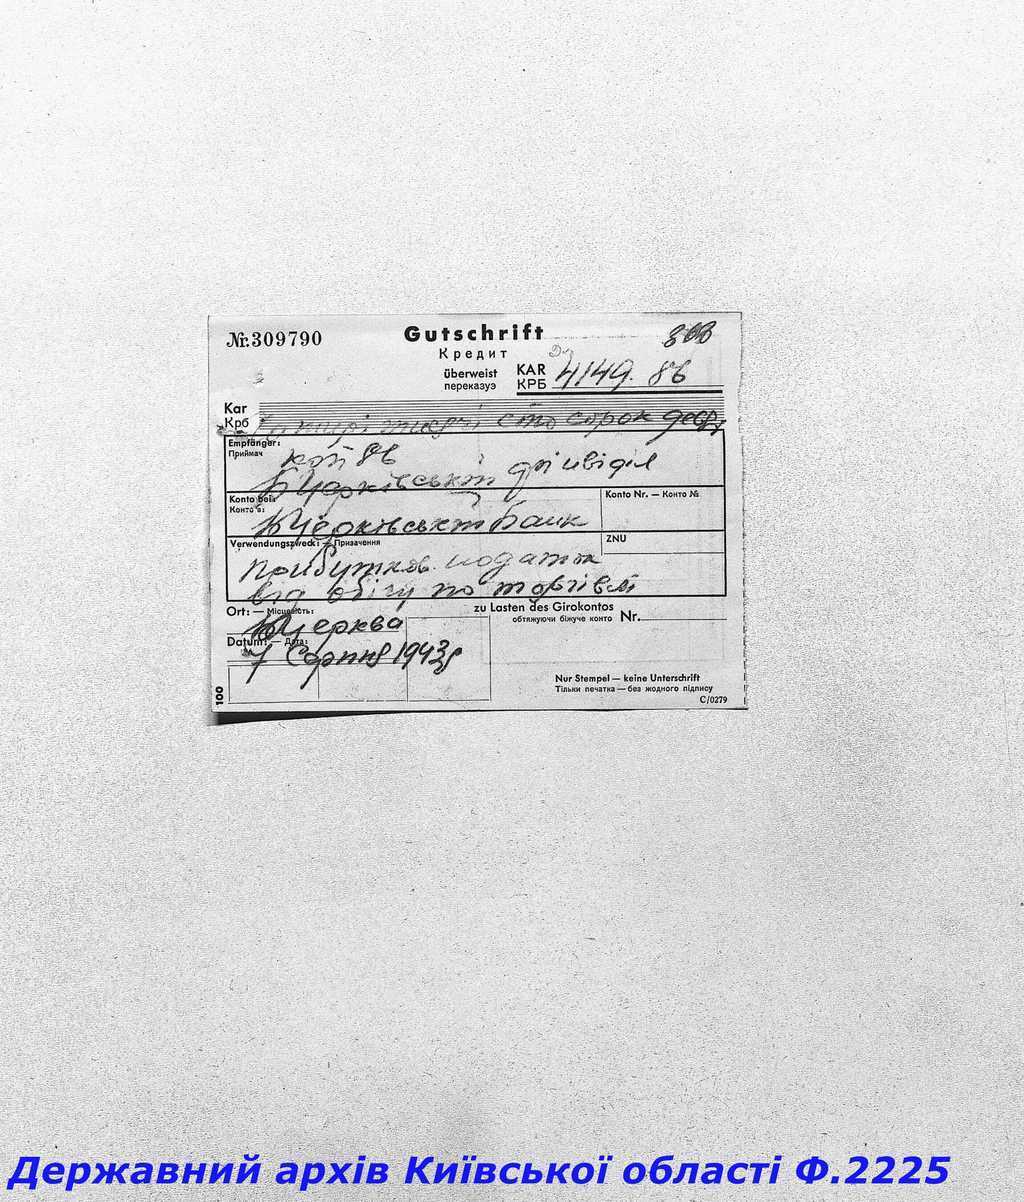 №.309790
Gutschrift
303
Кредит
überweist
переказуэ
KAR
КРБ
4149. 86
Kar
Крб
чотирі тисячі сто сорок девят
Empfänger:
Приймач
коп 86
Б Черківський фінвіділ
Konto bei:
Конто в:
Konto Nr. — Конто №
БЧерківський Банк
Verwendungszweck: — Призачення
ZNU
Прибутков. податок
від обігу по торгівлі
Ort: — Місцевість:
zu Lasten des Girokontos
обтяжуючи біжуче конто
Nr.
БЧерква
Datum: — Дата:
7 Серпня 1943р
Nur Stempel — keine Unterschrift
Тільки печатка — без жодного підпису
100
C/0279
Державний архів Київської області Ф.2225